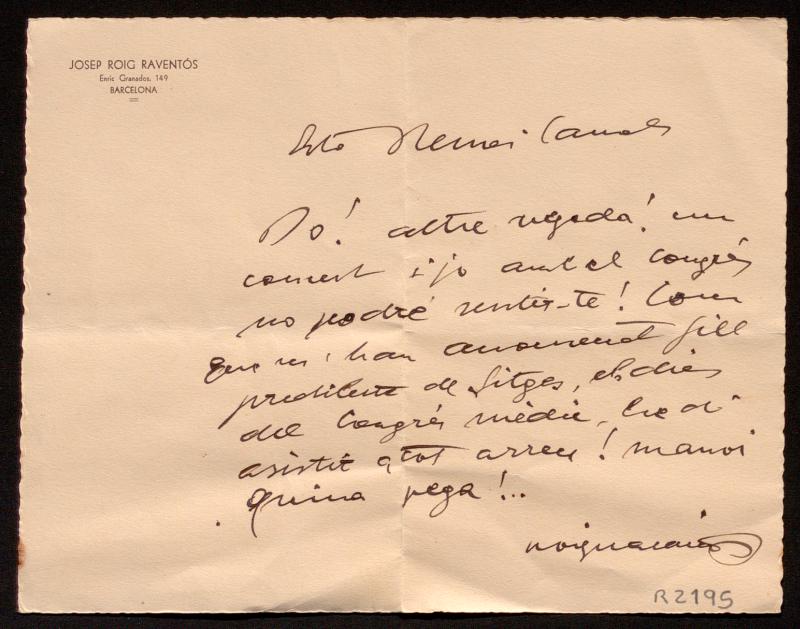 JOSEP ROIG RAVENTÓS
Enric Granados, 149
BARCELONA
Remei Canals
Do! altre vegada! un
concert i jo amb el Congrés
no podré sentir-te! Com
que m'han anomenat fill
predilecte de Sitges, els dies
del Congrés mèdic, he d'
asistir a tot arreu! manoi
quina pega!..
roigraventós
R2195